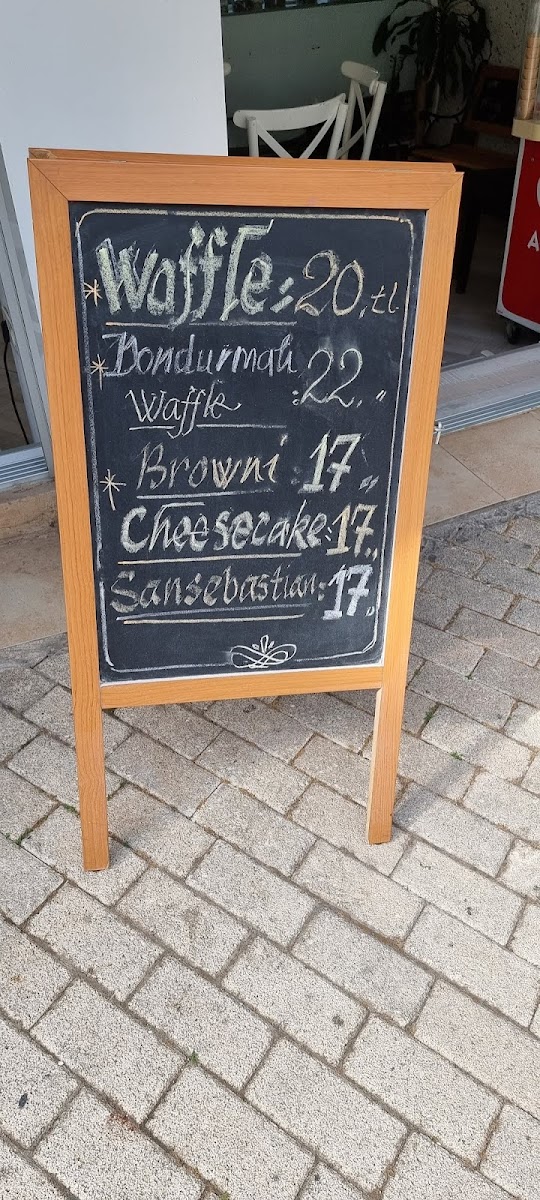 Waffle: 20.tl
Dondurmalı
Waffle :22.,,
Browni : 17,,
Cheesecake: 17,,
Sansebastian: 17,,